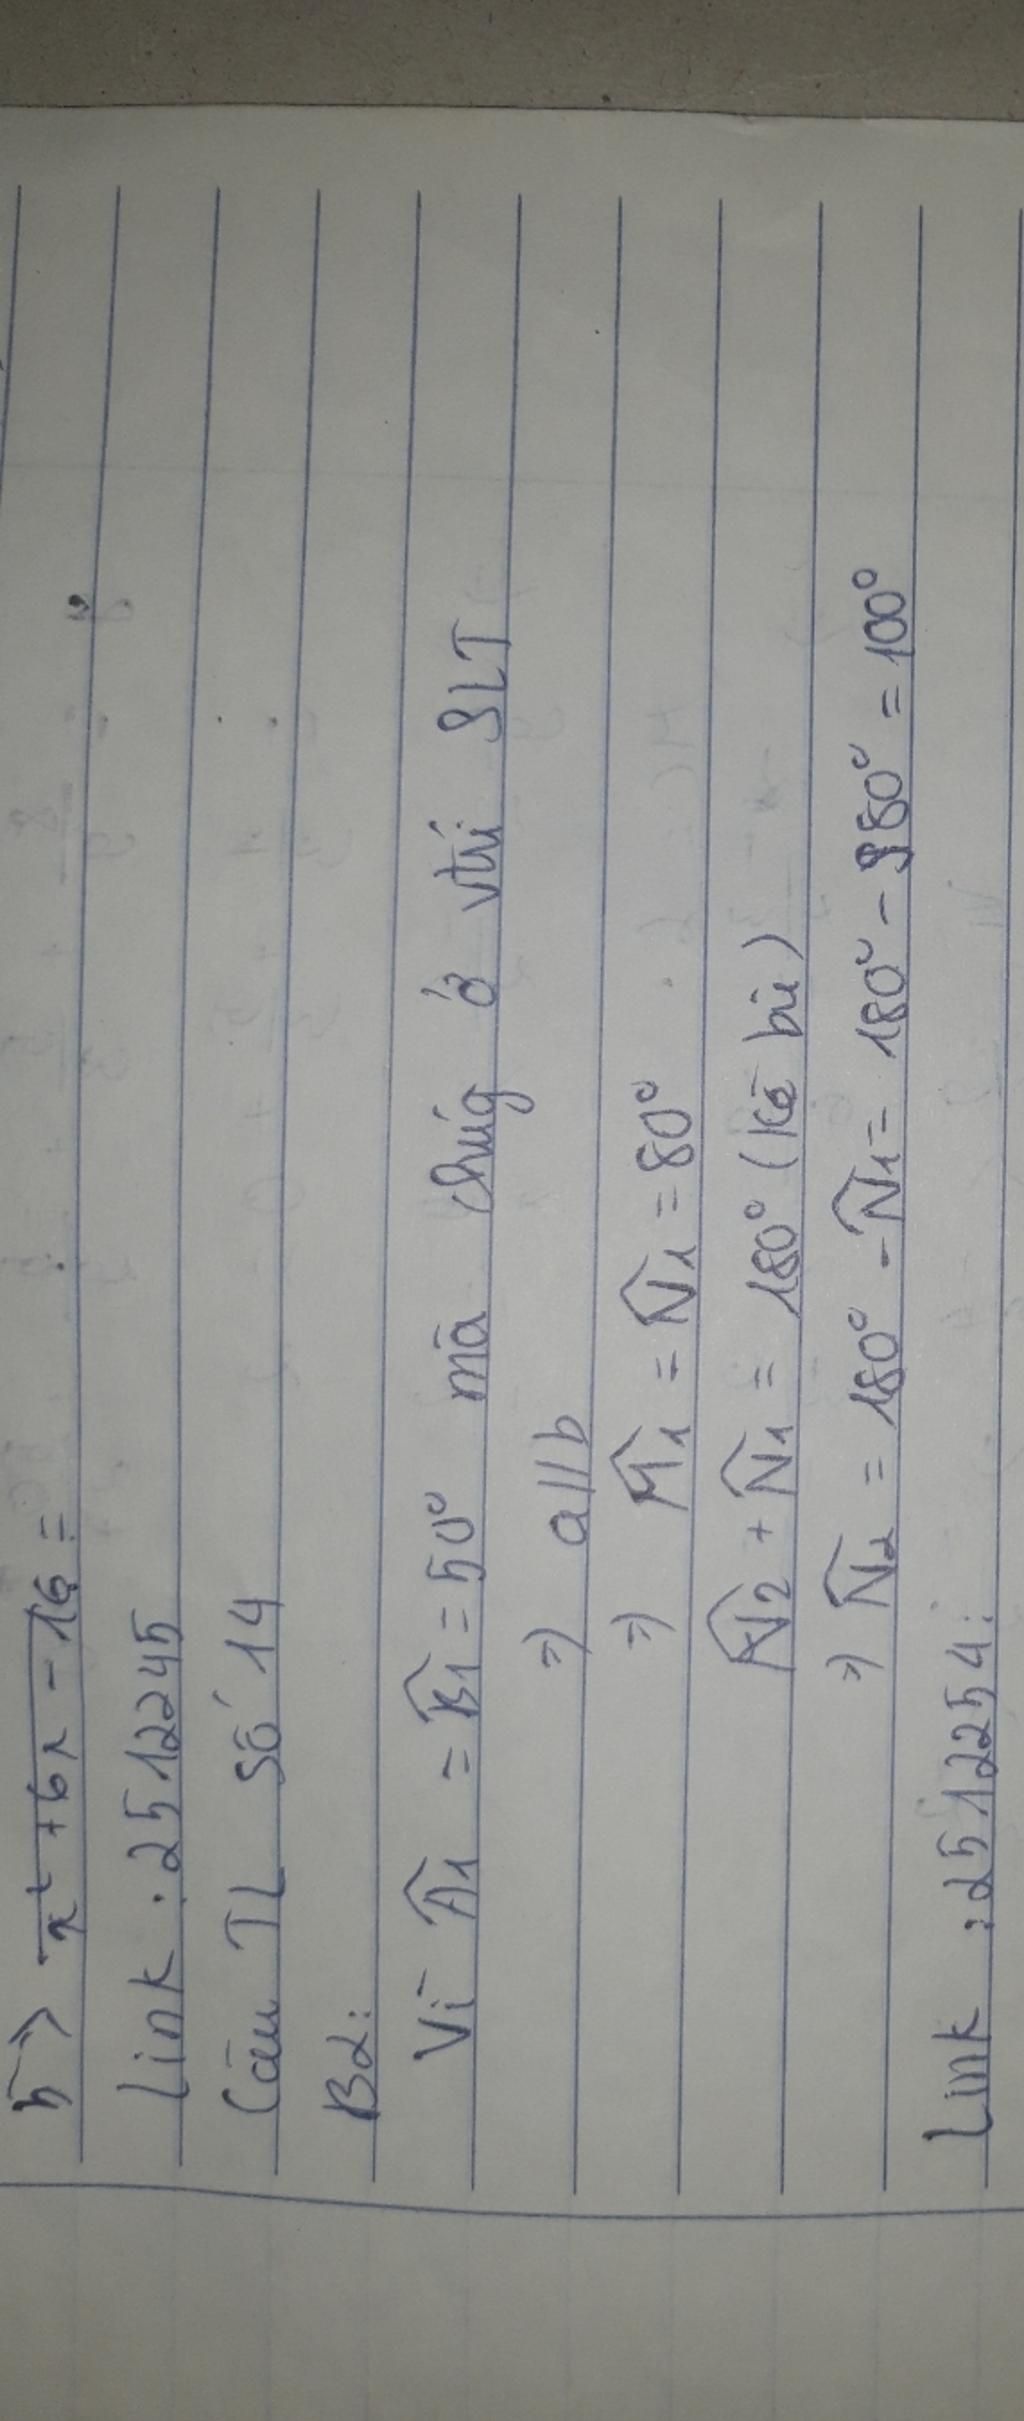 b) x² + 6x - 16 =
Link : 2512245
Câu TL số 14
B2:
Vì Â1 = B̂1 = 50° mà chúg ở vtrí SLT
=) a//b
=) M̂1 = N̂1 = 80°
N̂2 + N̂1 = 180° (kề bù)
=) N̂2 = 180° - N̂1 = 180° - 80° = 100°
Link : 2512254: